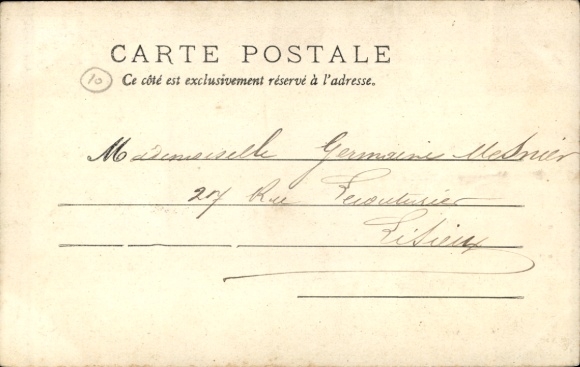 CARTE POSTALE
10
Ce côté est exclusivement réservé à l'adresse.
Mademoiselle Germaine Mesnier
27 Rue Lecouturier
Lisieux